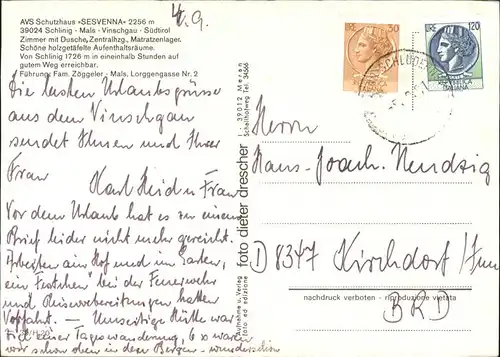 4.9.
AVS Schutzhaus »SESVENNA« 2256 m
39024 Schlinig - Mals - Vinschgau - Südtirol
Zimmer mit Dusche, Zentralhzg., Matratzenlager.
Schöne holzgetäfelte Aufenthaltsräume.
Von Schlinig 1726 m in eineinhalb Stunden auf
gutem Weg erreichbar.
Führung: Fam. Zöggeler - Mals, Lorggengasse Nr. 2
Die besten Urlaubsgrüsse
aus dem Vinschgau
sendet Ihnen und Ihrer
Frau
Karl Heid u Frau
Vor dem Urlaub hat es zu einem
Brief leider nicht mehr gereicht.
Arbeiten am Hof und im Garten,
ein Festchen bei der Feuerwehr
und Reisevorbereitungen hatten
Vorfahrt. — Umseitige Hütte war
Ziel einer Tageswanderung, 6 x waren
wir schon oben in den Bergen - wunderschön
Aufnahme u. Verlag
foto ed edizione
foto dieter drescher
I - 39012 Meran
Schallhofweg Tel. 34566
50
120
Herrn
Hans-Joach. Neudzig
D 8347 Kirchdorf/Inn
nachdruck verboten - riproduzione vietata
BRD